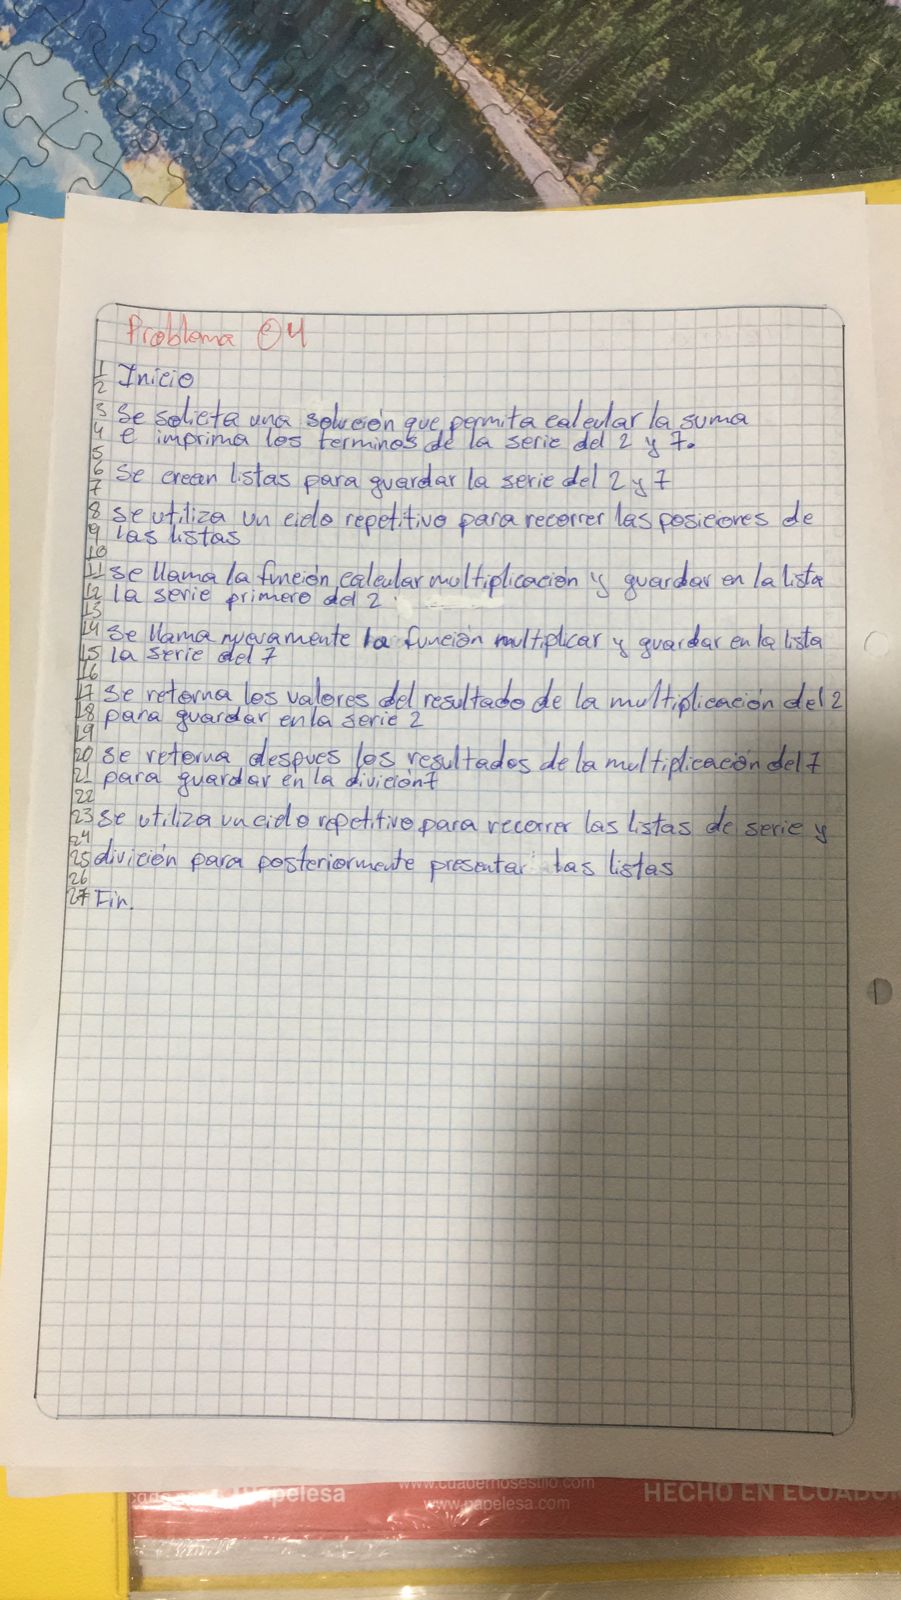 Problema 04
1
2 Inicio
3 Se solicita una solución que permita calcular la suma
4 e imprima los terminos de la serie del 2 y 7.
5
6 Se crean listas para guardar la serie del 2 y 7
7
8 se utiliza un ciclo repetitivo para recorrer las posiciones de
9 las listas
10
11 se llama la función calcular multiplicación y guardar en la lista
12 la serie primero del 2.
13
14 se llama nuevamente la función multiplicar y guardar en la lista
15 la serie del 7
16
17 se retorna los valores del resultado de la multiplicación del 2
18 para guardar en la serie 2
19
20 se retorna despues los resultados de la multiplicación del 7
21 para guardar en la división7
22
23 se utiliza un ciclo repetitivo para recorrer las listas de serie y
24
25 división para posteriormente presentar las listas
26
27 Fin.
papelesa
www.cuadernosestilo.com
www.papelesa.com
HECHO EN ECUADOR